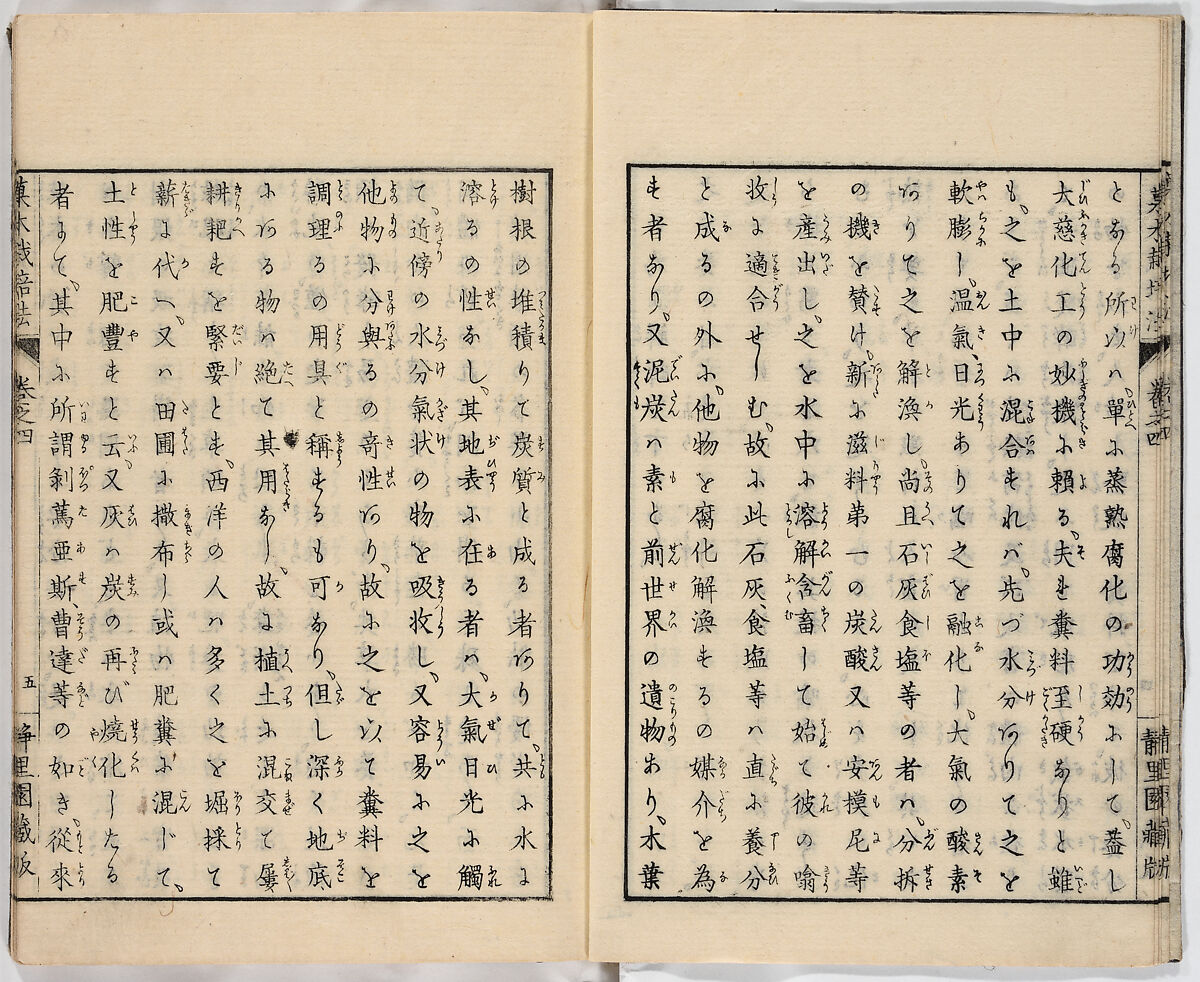 菓木栽培法
卷之四
靜里園藏版
となる所以ハ單に蒸熟腐化の功効にして、蓋し
大慈化工の妙機に賴る、夫レ糞料至硬なりと雖
も、之を土中に混合すれバ、先づ水分ありて之を
軟膨し、温氣、日光ありて之を融化し、大氣の酸素
ありて之を解渙し、尚且石灰食塩等の者ハ、分拆
の機を賛け、新に滋料第一の炭酸又ハ安摸尼等
を産出し、之を水中に溶解含畜して始て彼の噏
收に適合せしむ、故に此石灰、食塩等ハ直に養分
と成るの外に、他物を腐化解渙するの媒介を為
す者なり、又泥炭ハ素と前世界の遺物あり、木葉
樹根の堆積りて炭質と成る者ありて、共に水に
溶るの性なし、其地表に在る者ハ、大氣日光に觸
て、近傍の水分氣状の物を吸收し、又容易に之を
他物に分與るの竒性あり、故に之を以て糞料を
調理るの用具と稱するも可なり、但し深く地底
にある物ハ絶て其用なし、故に植土に混交て屢
耕耙すを緊要とす、西洋の人ハ多く之を堀採て
薪に代へ、又ハ田圃に撒布し或ハ肥糞に混じて、
土性を肥豐すと云、又灰ハ炭の再び燒化したる
者にて、其中に所謂剥篤亜斯、曹達等の如き、從來
菓木栽培法
卷之四
五
靜里園藏版